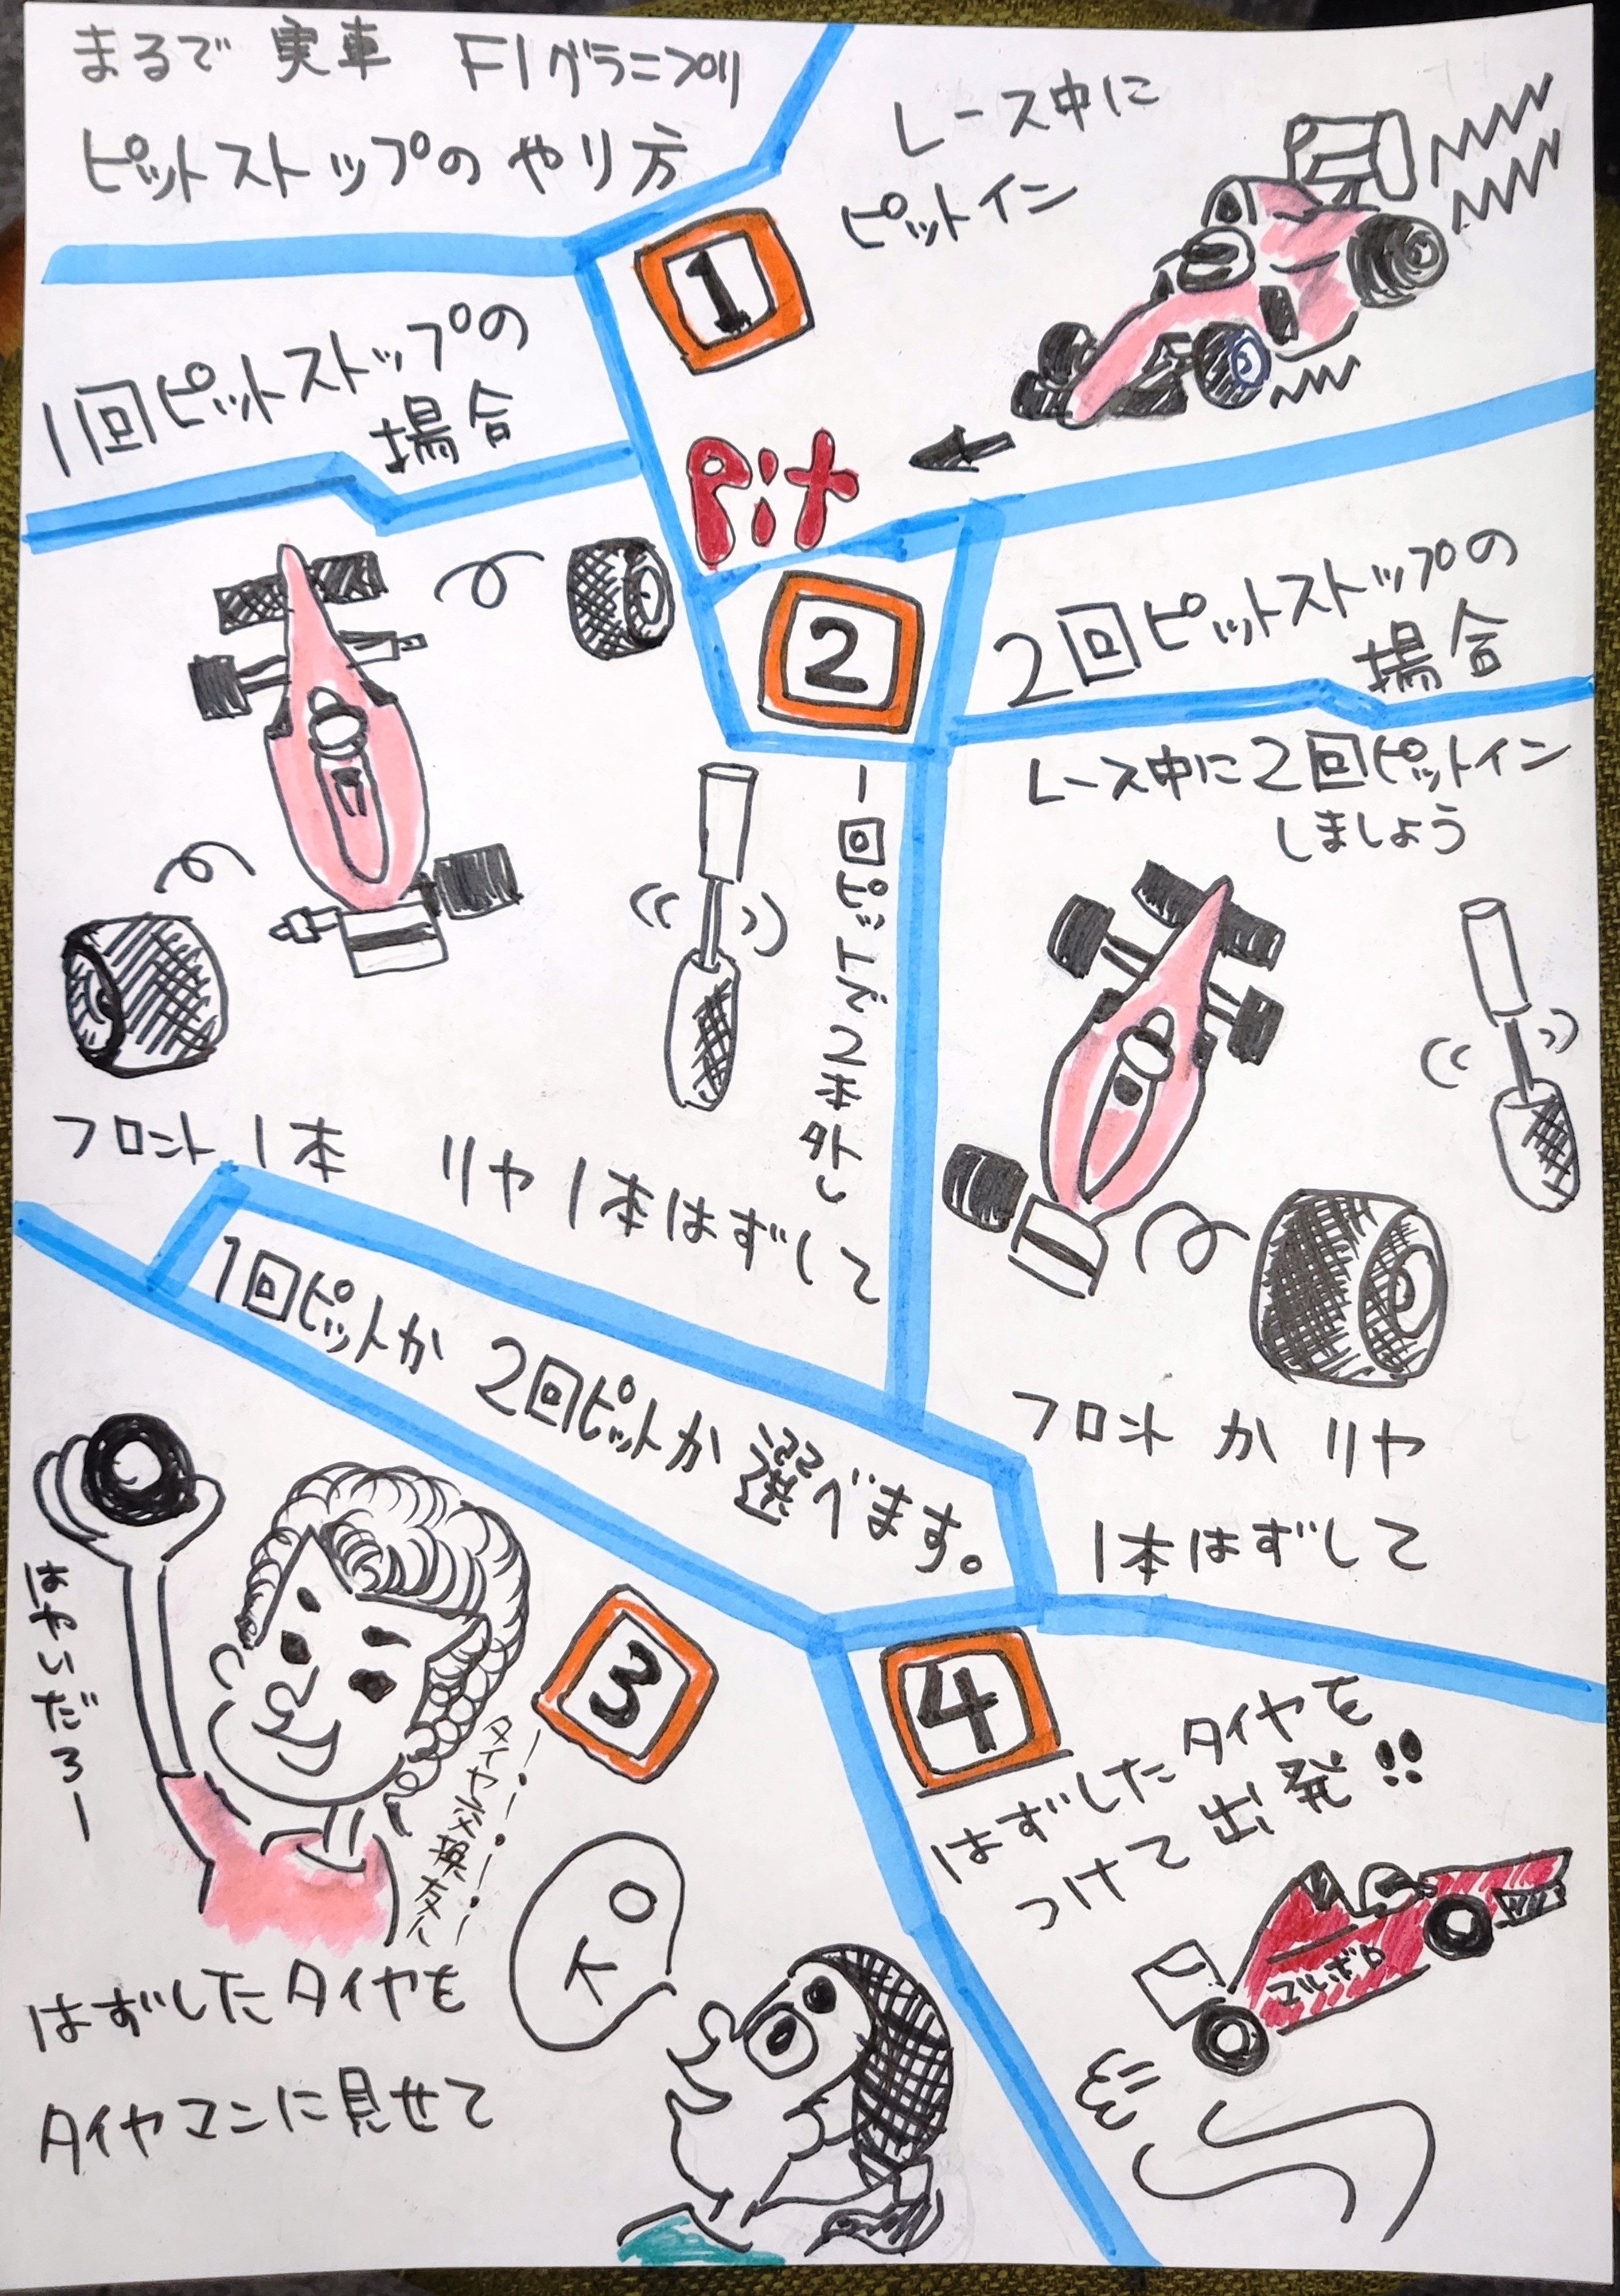 まるで 実車 F1グランプリ
ピットストップの やり方
1
レース中に
ピットイン
Pit
2
1回ピットストップの
場合
フロント 1本 リヤ 1本はずして
2回ピットストップの
場合
レース中に2回ピットイン
しましょう
フロント か リヤ
1本はずして
1回ピットか 2回ピットか 選べます。
3
はやいだろー
はずしたタイヤを
タイヤマンに見せて
OK
4
はずしたタイヤを
つけて 出発!!
マルボロ